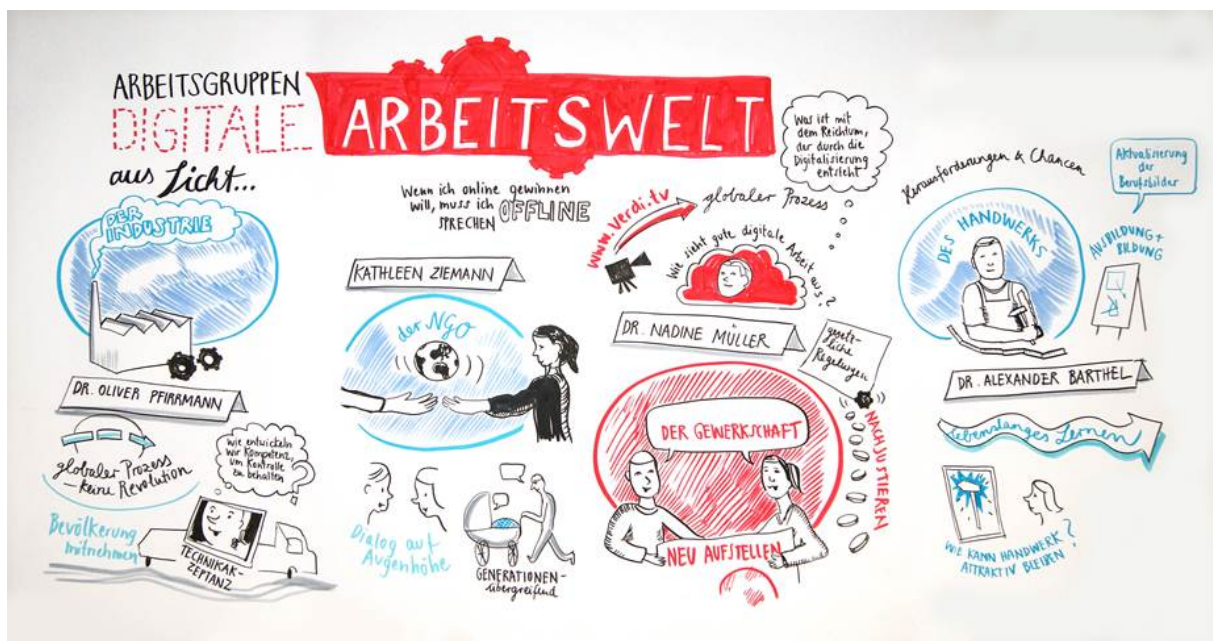 ARBEITSGRUPPEN
DIGITALE
ARBEITSWELT
aus Sicht...
DER
INDUSTRIE
DR. OLIVER PFIRRMANN
globaler Prozess
– keine Revolution
wie entwickeln
wir Kompetenz,
um Kontrolle
zu behalten
Bevölkerung
mitnehmen
TECHNIKAK-
ZEPTANZ
Wenn ich online gewinnen
will, muss ich
OFFLINE
SPRECHEN
KATHLEEN ZIEMANN
der NGO
Dialog auf
Augenhöhe
GENERATIONEN-
übergreifend
www.Verdi.tv
globaler Prozess
Was ist mit
dem Reichtum,
der durch die
Digitalisierung
entsteht
Wie sieht gute digitale Arbeit aus?
DR. NADINE MÜLLER
gesetz-
liche
Regelungen
NACHJUSTIEREN
DER GEWERKSCHAFT
NEU AUFSTELLEN
Herausforderungen & Chancen
Aktualisierung
der
Berufsbilder
DES HANDWERKS
AUSBILDUNG +
BILDUNG
DR. ALEXANDER BARTHEL
Lebenslanges Lernen
WIE KANN HANDWERK
ATTRAKTIV BLEIBEN?